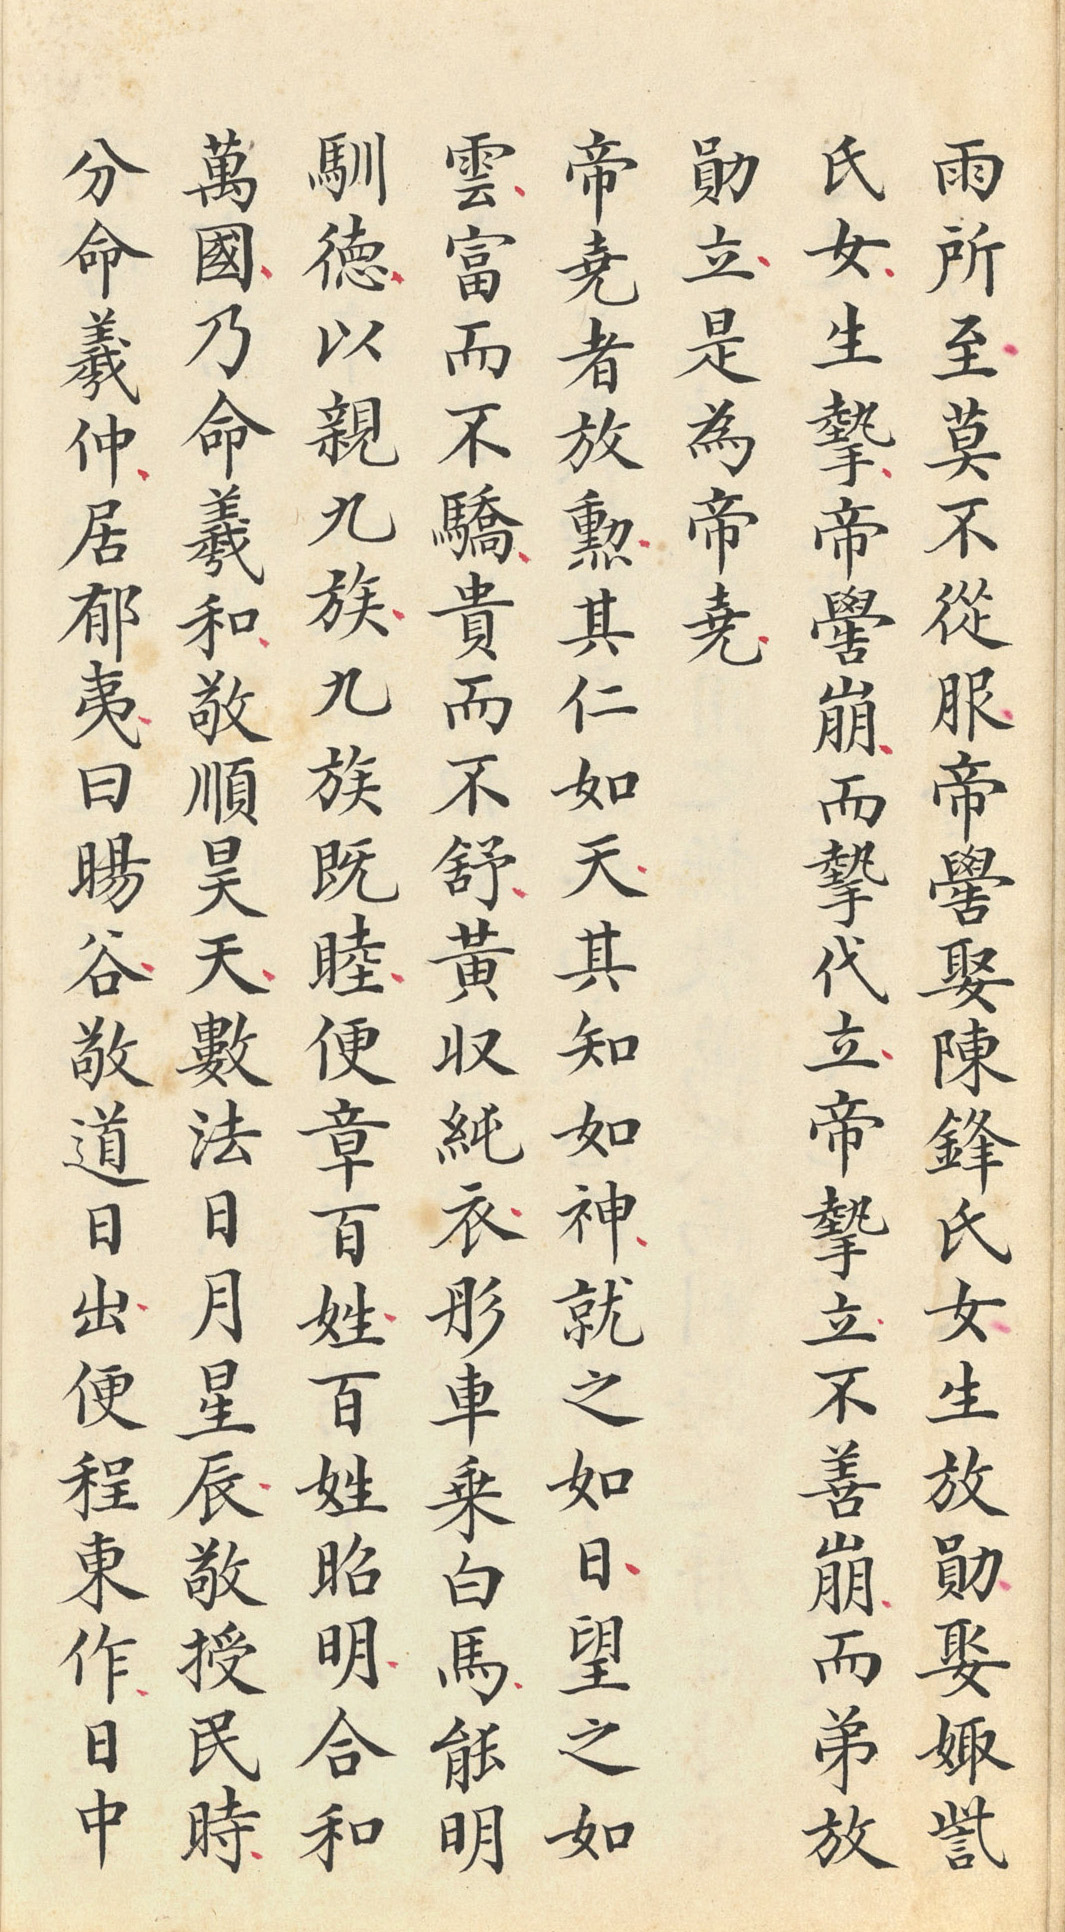 雨所至莫不從服帝嚳娶陳鋒氏女生放勛娶娵訾
氏女生摯帝嚳崩而摯代立帝摯立不善崩而弟放
勛立是為帝堯
帝堯者放勲其仁如天其知如神就之如日望之如
雲富而不驕貴而不舒黃収純衣彤車乗白馬能明
馴徳以親九族九族既睦便章百姓百姓昭明合和
萬國乃命羲和敬順昊天數法日月星辰敬授民時
分命羲仲居郁夷曰暘谷敬道日出便程東作日中